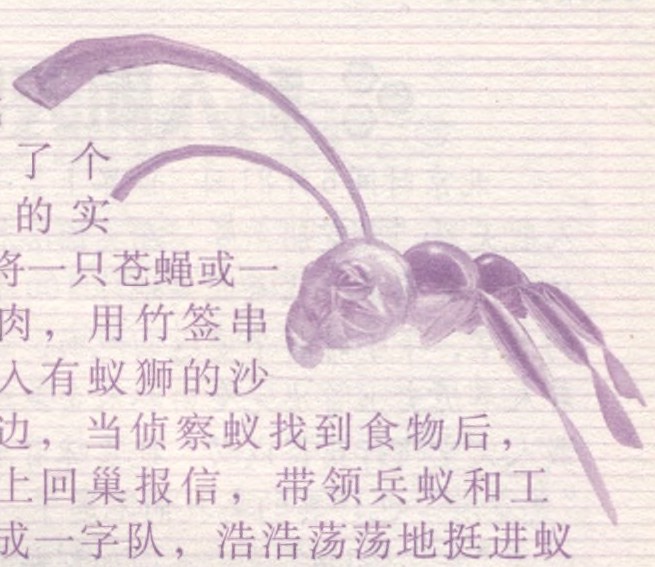 了个
的实
将一只苍蝇或一
肉，用竹签串
入有蚁狮的沙
边，当侦察蚁找到食物后，
上回巢报信，带领兵蚁和工
成一字队，浩浩荡荡地挺进蚁